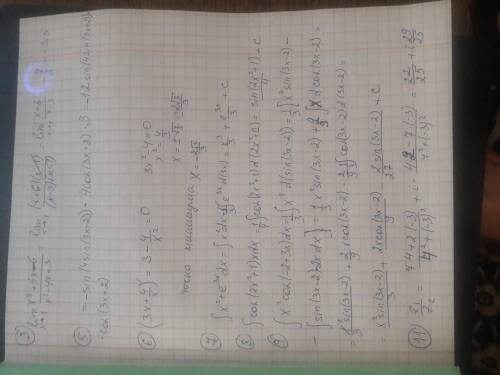 ③ lim x→1 (x²+5x-6)/(x²-4x+3) = lim x→1 (x+6)(x-1)/(x-3)(x-1) = lim x→1 (x+6)/(x-3) = 7/-2 = -3,5
⑤ = -sin(4sin(3x+2)) · 4cos(3x+2) · 3 = -12 sin(4sin(3x+2)) ·
· cos(3x+2)
⑥ (3x + 4/x)' = 3 - 4/x² = 0
3x²-4=0
x² = 4/3
x = ± = ± 2√3/3
точка максимума x = -2√3/3
⑦ ∫x²+e^3x dx = ∫x²dx + 1/3∫e^3x d(3x) = x³/3 + e^3x/3 + c
⑧ ∫cos(2x²+1)xdx = 1/4∫cos(2x²+1)d(2x²+1) = sin(2x²+1)/4 + c
⑨ ∫x²cos(-2+3x)dx = 1/3∫x² d(sin(3x-2)) = 1/3[x²sin(3x-2) -
- ∫sin(3x-2)2x dx] = 1/3x²sin(3x-2) + 2/9∫x d cos(3x-2) =
= x²sin(3x-2)/3 + 2/9 x cos(3x-2) - 2/9 · 1/3∫cos(3x-2)d(3x-2) =
= x²sin(3x-2)/3 + 2x cos(3x-2)/9 - 2sin(3x-2)/27 + c
⑪ z₁/z₂ = (4+2(-3))/(4²+(-3)²) + i · (4·2-7(-3))/(4²+(-3)²) = 22/25 + i 29/25